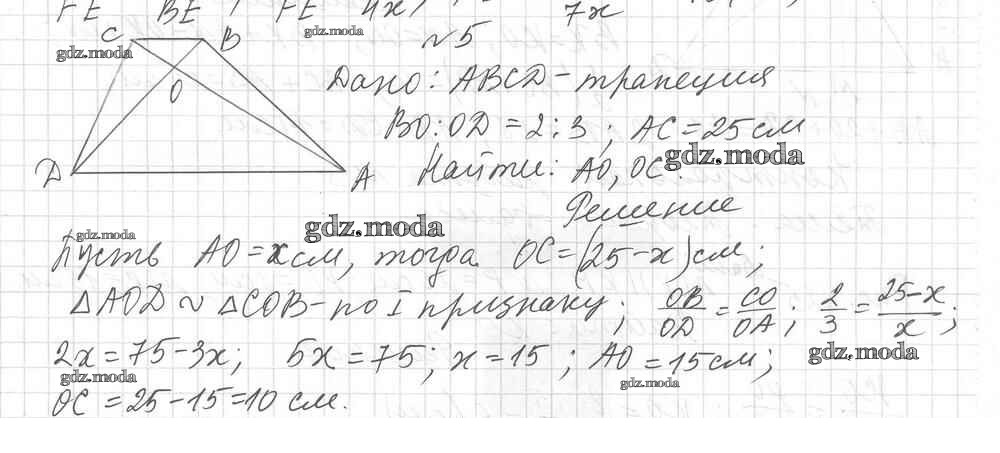 FE BE ; FE 4x 7x
C B №5
gdz.moda gdz.moda
O Дано: ABCD - трапеция
BO:OD = 2:3 ; AC = 25 см
D A Найти: AO, OC. gdz.moda
Решение
gdz.moda gdz.moda
Пусть AO = x см, тогда OC = (25 - x) см;
△AOD ~ △COB - по I признаку; OB/OD = CO/OA; 2/3 = (25-x)/x;
2x = 75 - 3x; 5x = 75; x = 15; AO = 15 см;
gdz.moda gdz.moda gdz.moda
OC = 25 - 15 = 10 см.